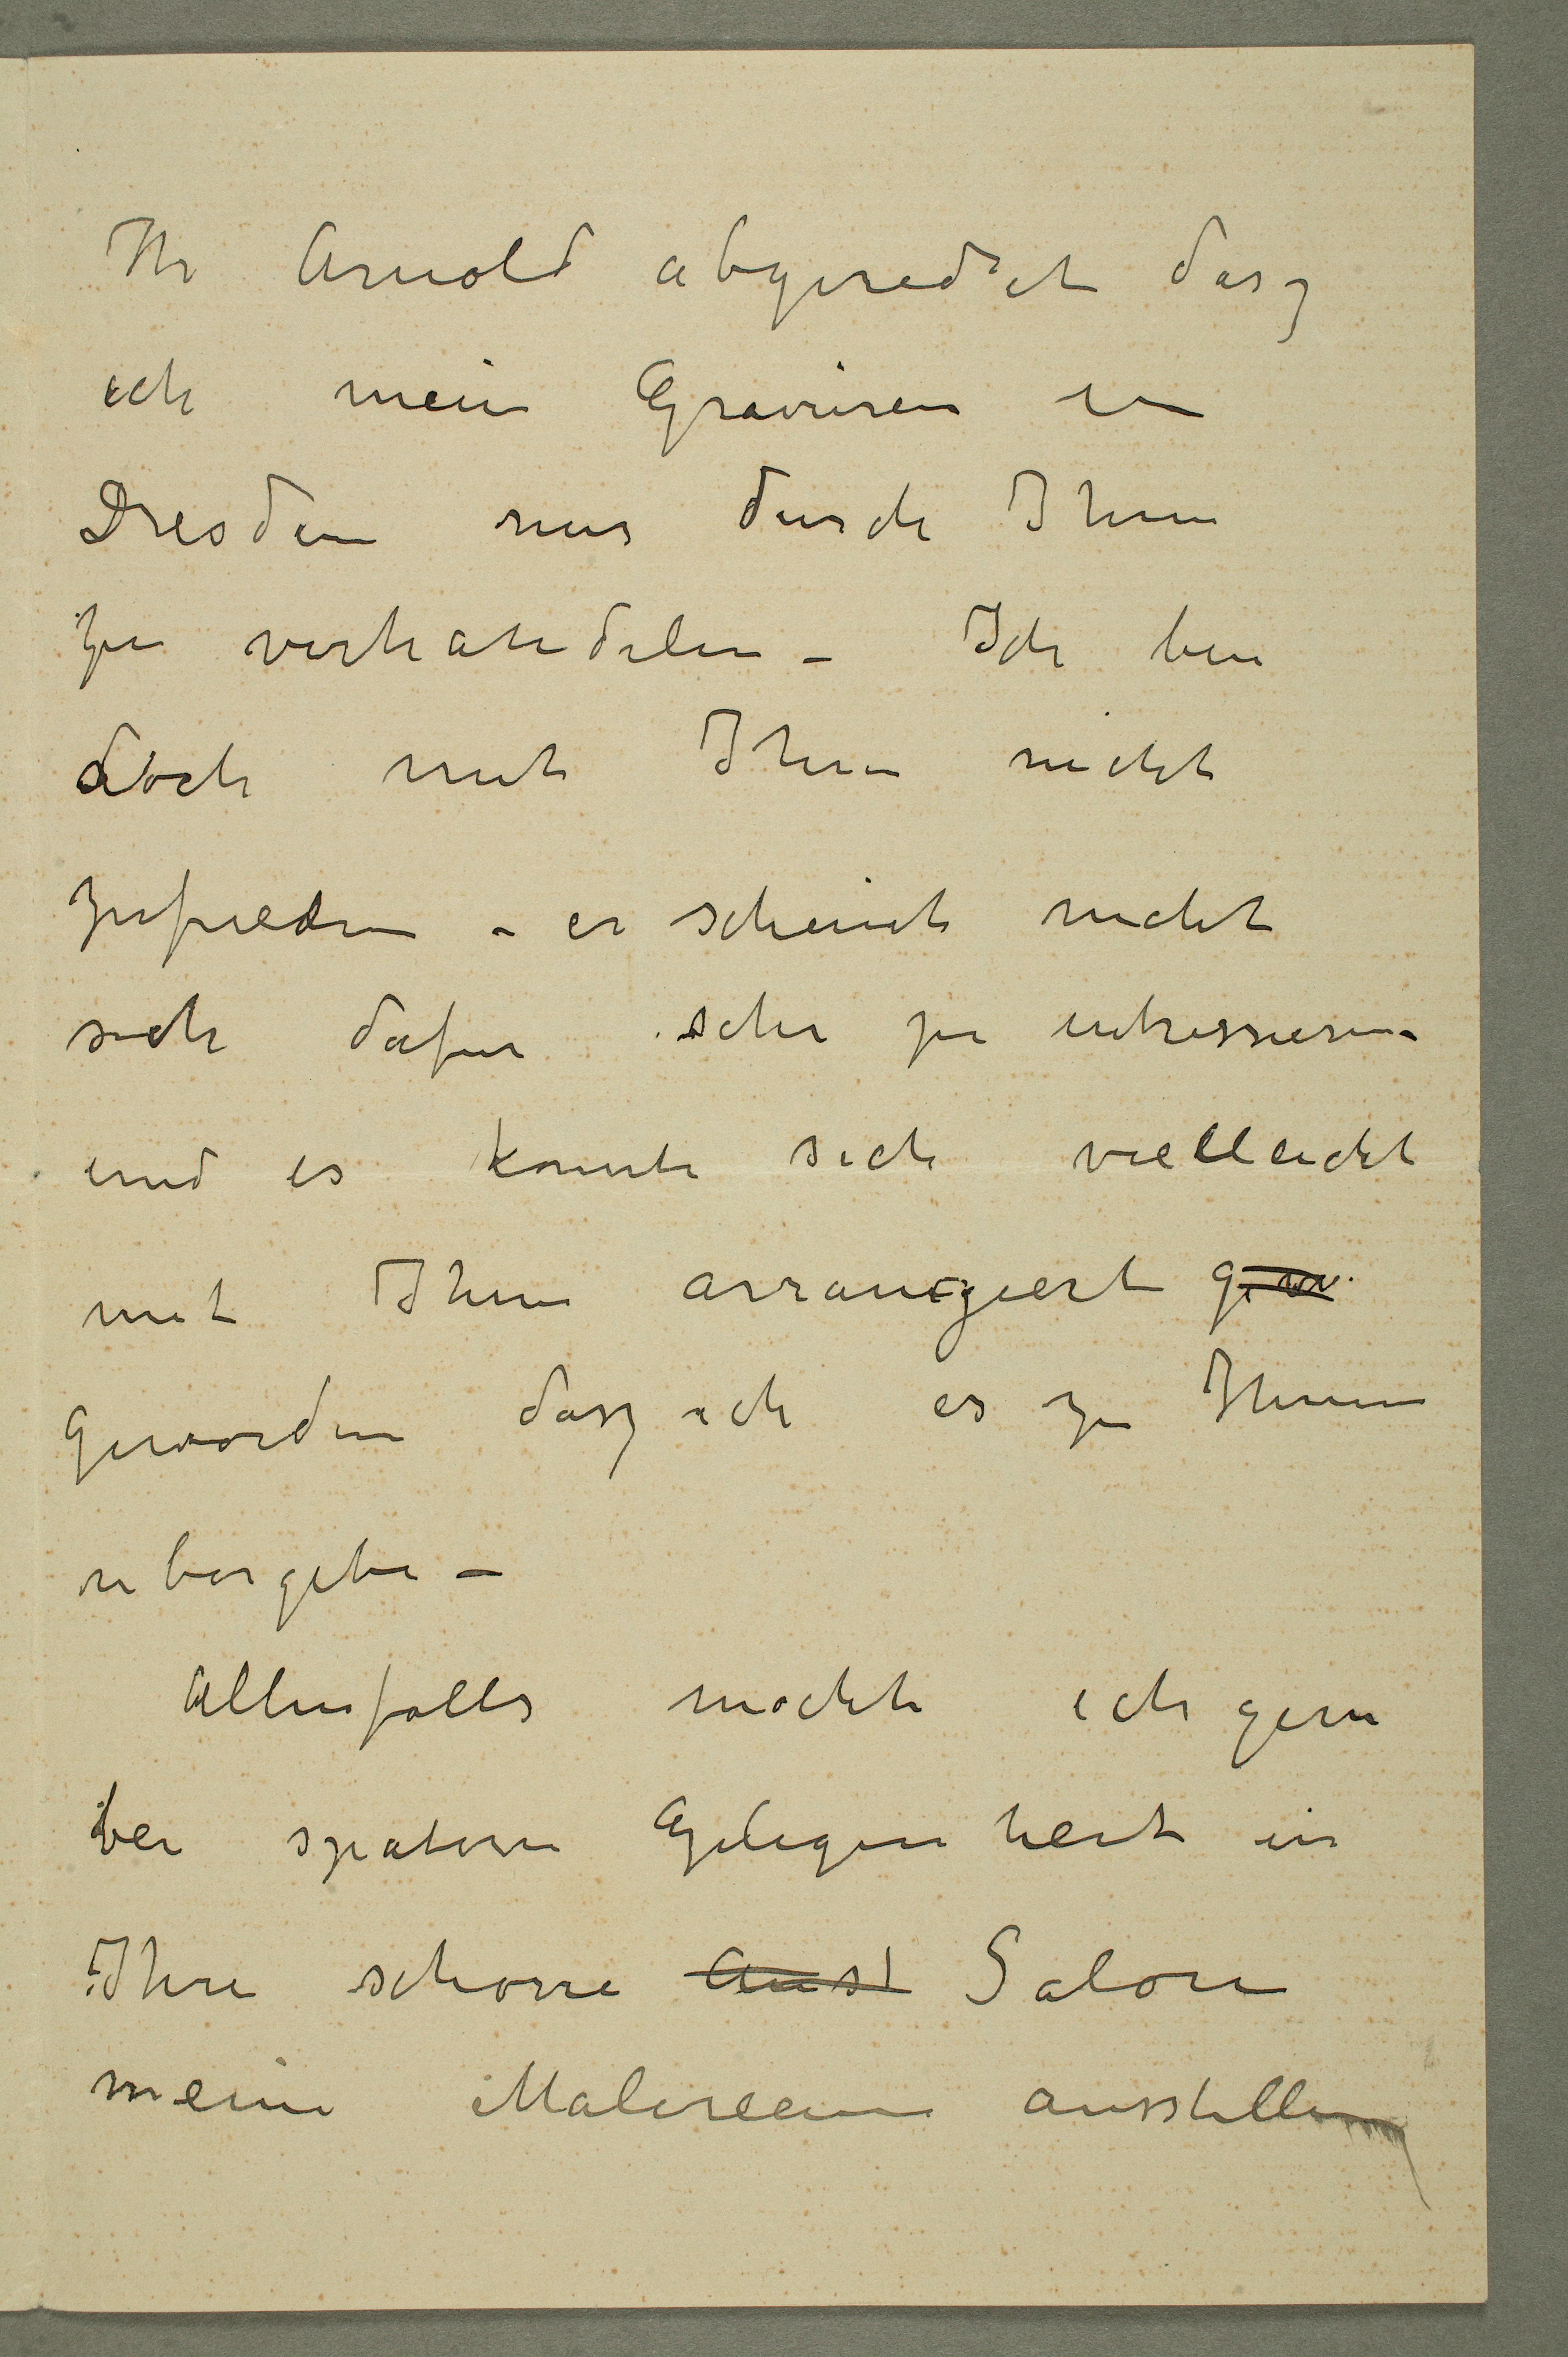 Hr Arnold abgeredet dasz
ich mein Gravüren in
Dresden nur durch Ihm
zu verhandelen – Ich bin
doch mit Ihm nicht
zufrieden – er scheint nicht
sich dafur sehr zu intressieren –
und es konnte sich vielleicht
mit Ihm arrangiert gew
geworden dasz ich es zu Ihnen
ubergebe –
Allenfalls mochte ich gern
bei spateren Gelegenheit in
Ihre schone Aust Salon
meine Malereien ausstellen